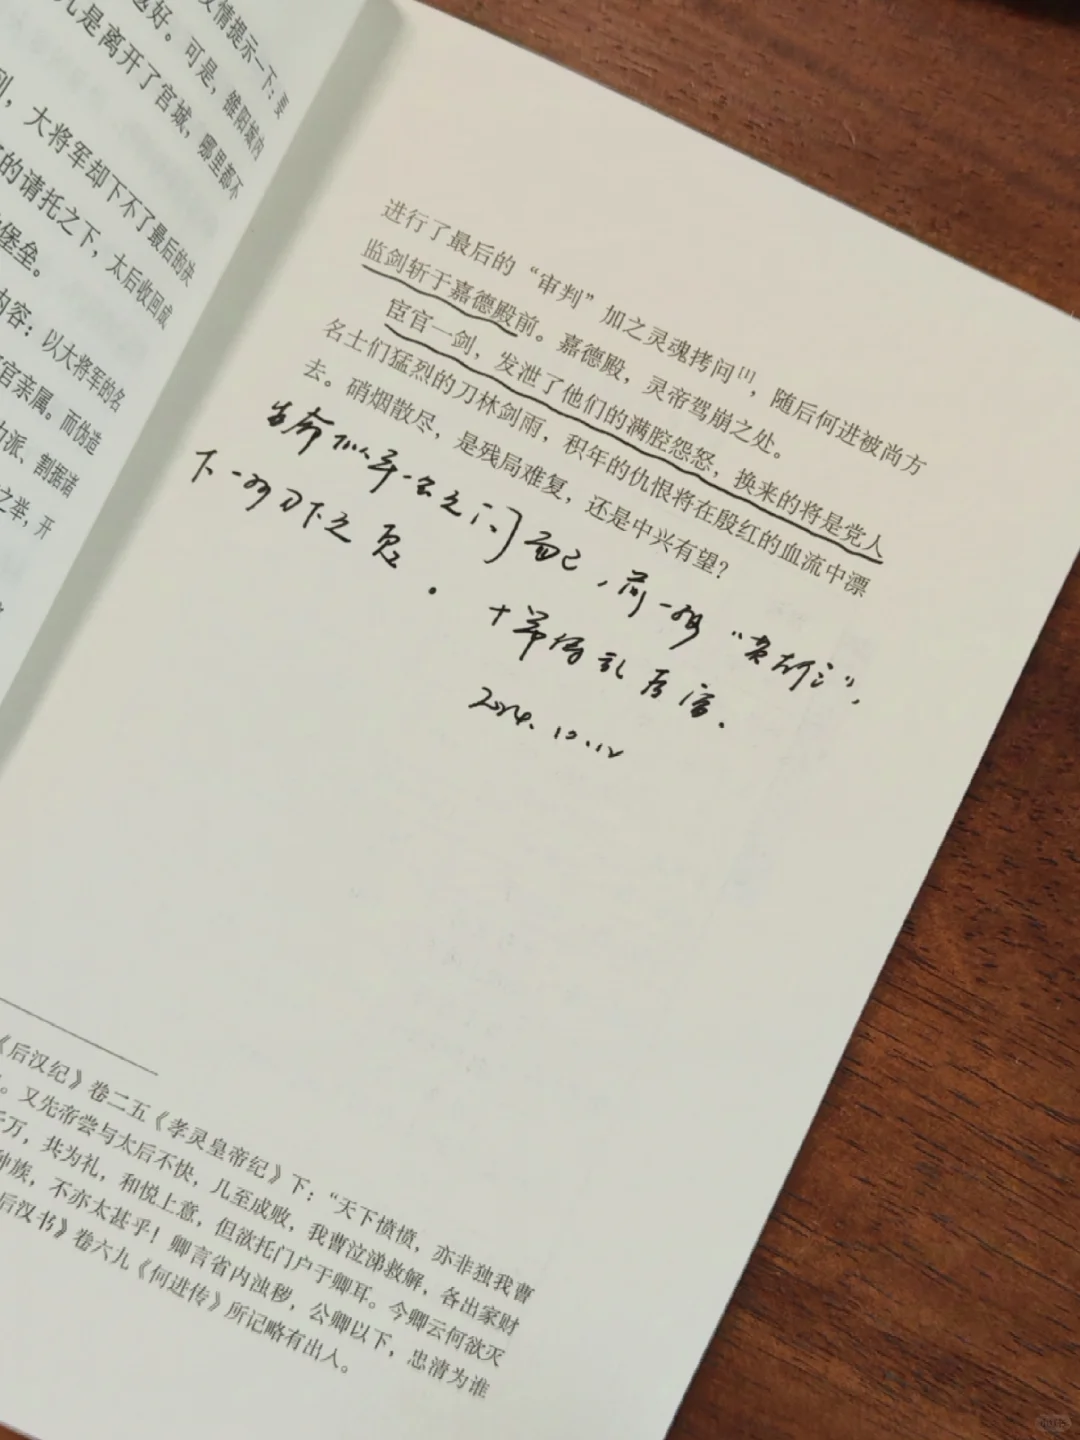 友情提示一下：要
越好。可是，雒阳城内
凡是离开了宫城，哪里都不
大将军却下不了最后的决
的请托之下，太后收回成
堡垒。
内容：以大将军的名
官亲属。而伪造
力派、割据诸
之举，开
进行了最后的“审判”加之灵魂拷问[1]，随后何进被尚方
监剑斩于嘉德殿前。嘉德殿，灵帝驾崩之处。
宦官一剑，发泄了他们的满腔怨怒，换来的将是党人
名士们猛烈的刀林剑雨，积年的仇恨将在殷红的血流中漂
去。硝烟散尽，是残局难复，还是中兴有望？
之间而已，前一
下一 刀下之
2024.10.12
《后汉纪》卷二五《孝灵皇帝纪》下：“天下愦愦，亦非独我曹
。又先帝尝与太后不快，几至成败，我曹泣涕救解，各出家财
千万，共为礼，和悦上意，但欲托门户于卿耳。今卿云何欲灭
种族，不亦太甚乎！卿言省内浊秽，公卿以下，忠清为谁
后汉书》卷六九《何进传》所记略有出入。